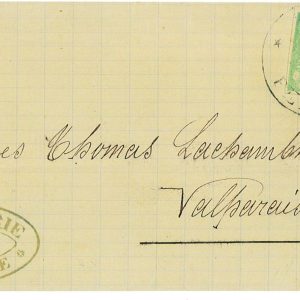 es Thomas Lachamb
Valparai
RIE
E